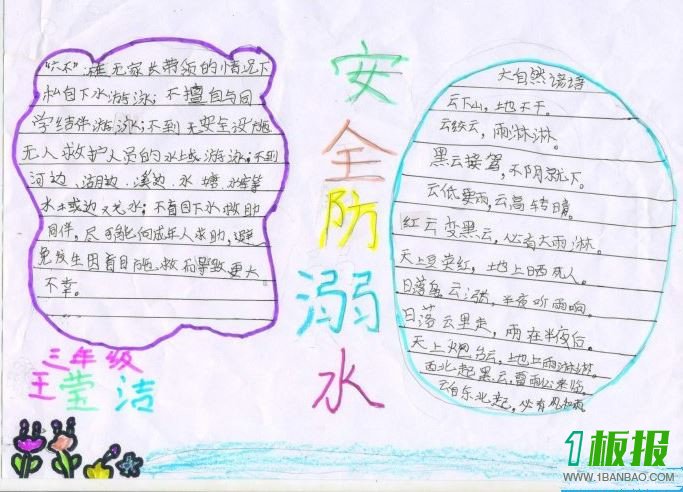 "六不":在无家长带领的情况下
私自下水游泳;不擅自与同
学结伴游泳;不到无安全设施
无人救护人员的水域游泳;不到
河边、湖边、溪边、水塘、水库等
水边;不盲目下水救助
同伴,尽可能向成年人求助,避
免发生因盲目施救而导致更大
不幸。
三年级
王莹洁
安全防溺水
大自然谚语
云下山,地不干。
云绞云,雨淋淋。
黑云接驾,不阴就下。
云低要雨,云高转晴。
红云变黑云,必有大雨淋。
天上豆荚红,地上晒人。
日落云涨,半夜听雨响。
日落云里走,雨在半夜后。
天上炮台云,地上雨淋淋。
西北起黑云,雷雨必来临。
云自东北起,必有风和雨
1板报
WWW.1BANBAO.COM